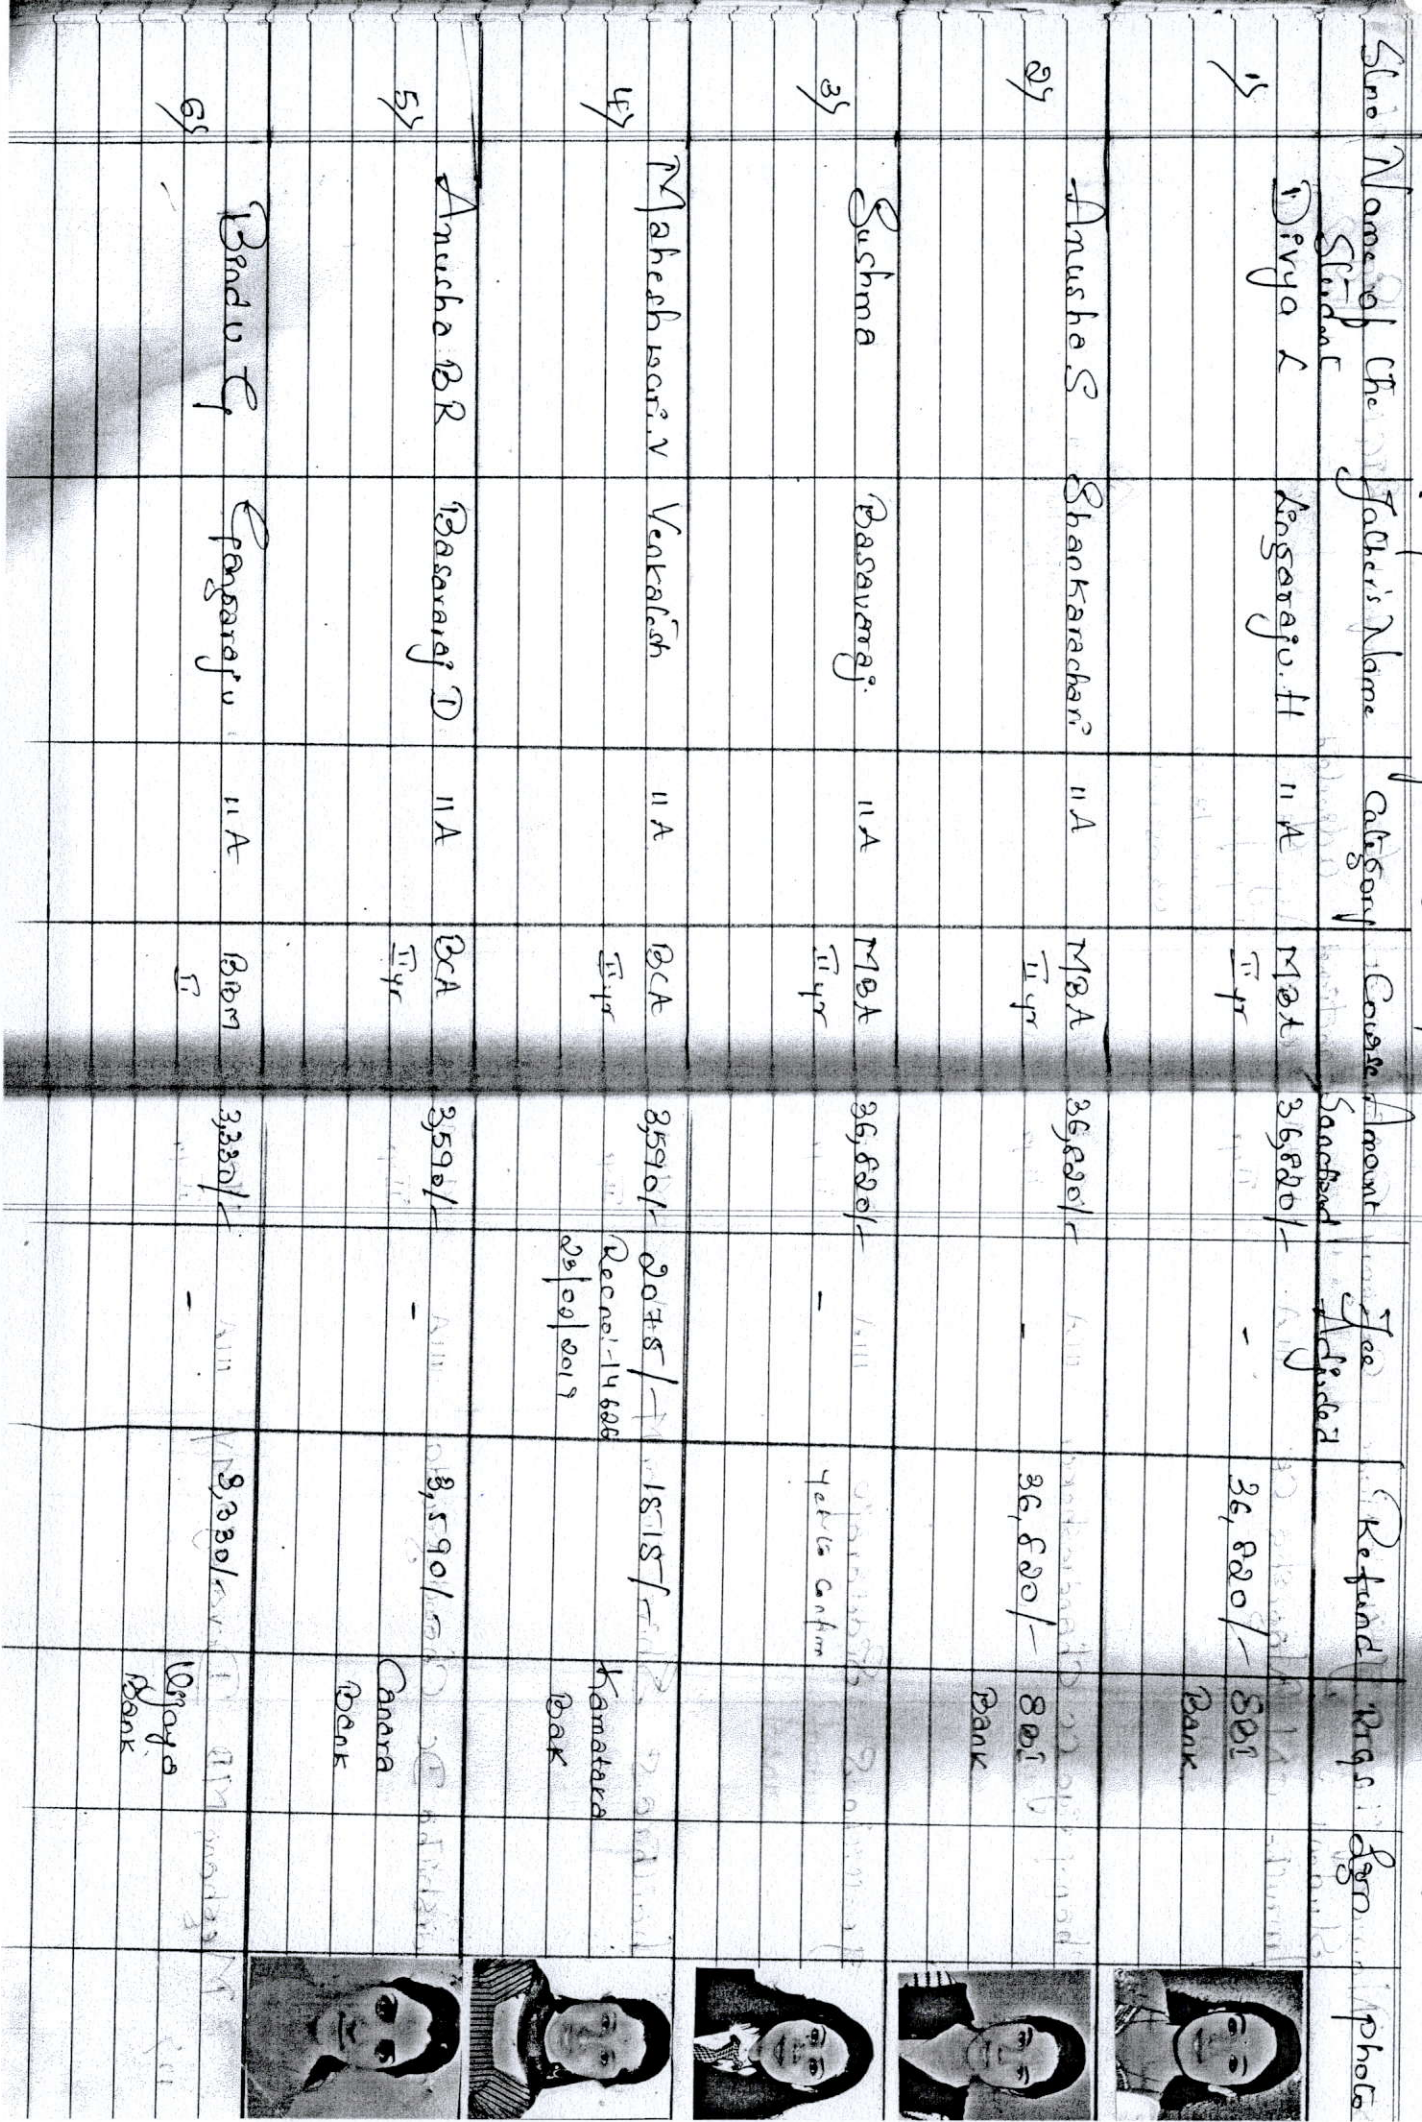 Slno Name of the Student Father's Name Category Course Amount Sanctiond Fee Adjusted Refund RTGS Sign photo
1) Divya L Lingaraju.H IIA MBA 36,820/- - 36,820/- SBI
II yr Bank
2) Anusha S Shankarachari IIA MBA 36,820/- - 36,820/- SBI
II yr Bank
3) Sushma Basavaraj IIA MBA 36,820/- - yet to Confirm
II yr
4) Maheshwari.V Venkatesh IIA BCA 3,590/- 2075/- 1515/- Karnataka
II yr Recno:-14626 Bank
23/02/2019
5) Anusha BR Basavaraj D IIA BCA 3,590/- - 3,590/- Canara
II yr Bank
6) Bindu G Gangaraju IIA BBM 3,330/- - 3,330/- Vijaya
II Bank